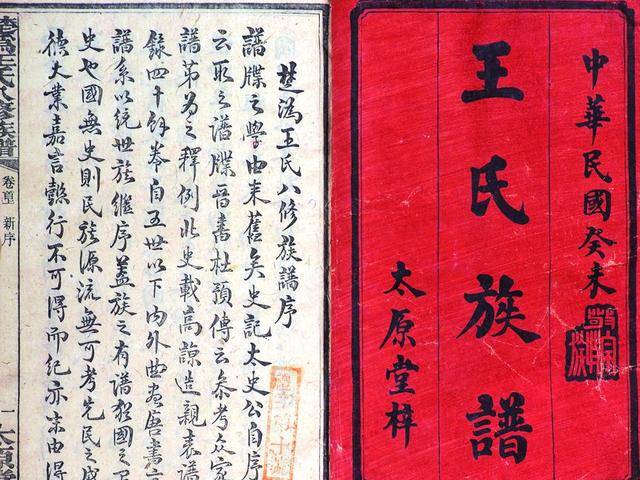 中華民國癸未
王氏族譜
太原堂梓
楚溈王氏八修族譜序
譜牒之學由來舊矣史記太史公自序
云取之譜牒晉書杜預傳云參考眾家
譜第為之釋例北史載高諒造親表譜
錄四十餘卷自五世以下內外曲盡唐書
譜系以統世族繼序蓋族之有譜猶國之
史也國無史則民族源流無可考先民之盛
德大業嘉言懿行不可得而紀亦末由得
楚溈王氏八修族譜
新序
一
太原堂